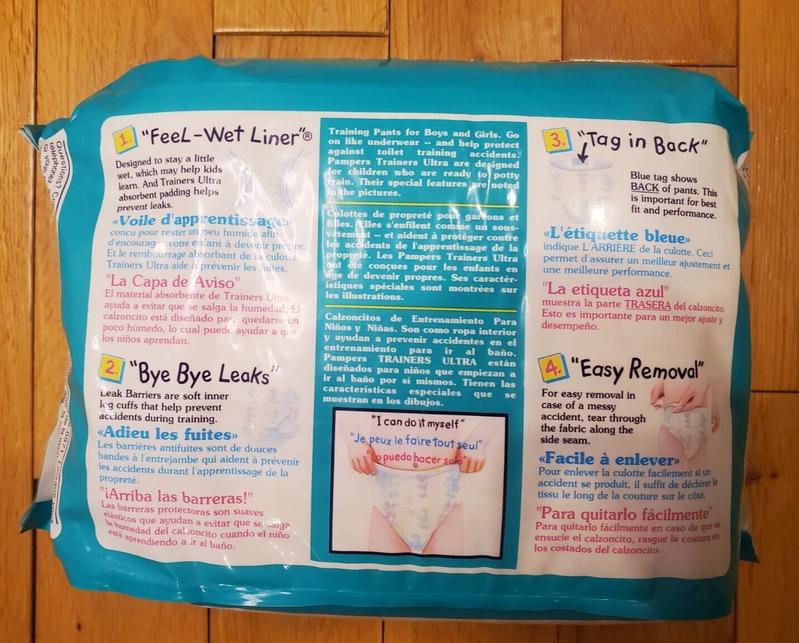 1. "FeeL-Wet Liner"®
Designed to stay a little
wet, which may help kids
learn. And Trainers Ultra
absorbent padding helps
prevent leaks.
«Voile d'apprentissage»
concu pour rester un peu humide afin
d'encourag votre enfant à devenir propre.
Et le rembourrage absorbant de la culotte
Trainers Ultra aide à prévenir les fuites.
"La Capa de Aviso"
El material absorbente de Trainers Ultra
ayuda a evitar que se salga la humedad. El
calzoncito está diseñado para quedarse un
poco húmedo, lo cual puede ayudar a que
los niños aprendan.
2. "Bye Bye Leaks"
Leak Barriers are soft inner
leg cuffs that help prevent
accidents during training.
«Adieu les fuites»
Les barrières antifuites sont de douces
bandes à l'entrejambe qui aident à prévenir
les accidents durant l'apprentissage de la
propreté.
"¡Arriba las barreras!"
Las barreras protectoras son suaves
elásticos que ayudan a evitar que se salga
la humedad del calzoncito cuando el niño
está aprendiendo a ir al baño.
Training Pants for Boys and Girls. Go
on like underwear -- and help protect
against toilet training accidents.
Pampers Trainers Ultra are designed
for children who are ready to potty
train. Their special features are noted
in the pictures.
Culottes de propreté pour garçons et
filles. Elles s'enfilent comme un sous-
vêtement -- et aident à protéger contre
les accidents de l'apprentissage de la
propreté. Les Pampers Trainers Ultra
ont été conçues pour les enfants en
âge de devenir propres. Ses caractér-
istiques spéciales sont montrées sur
les illustrations.
Calzoncitos de Entrenamiento Para
Niños y Niñas. Son como ropa interior
y ayudan a prevenir accidentes en el
entrenamiento para ir al baño.
Pampers TRAINERS ULTRA están
diseñados para niños que empiezan a
ir al baño por si mismos. Tienen las
características especiales que se
muestran en los dibujos.
"I can do it myself"
"Je peux le faire tout seul"
"Yo puedo hacer solo"
3. "Tag in Back"
Blue tag shows
BACK of pants. This
is important for best
fit and performance.
«L'étiquette bleue»
indique L'ARRIÈRE de la culotte. Ceci
permet d'assurer un meilleur ajustement et
une meilleure performance.
"La etiqueta azul"
muestra la parte TRASERA del calzoncito.
Esto es importante para un mejor ajuste y
desempeño.
4. "Easy Removal"
For easy removal in
case of a messy
accident, tear through
the fabric along the
side seam.
«Facile à enlever»
Pour enlever la culotte facilement si un
accident se produit, il suffit de déchirer le
tissu le long de la couture sur le côté.
"Para quitarlo fácilmente"
Para quitarlo fácilmente en caso de que se
ensucie el calzoncito, rasgue la costura en
los costados del calzoncito.
Questions?